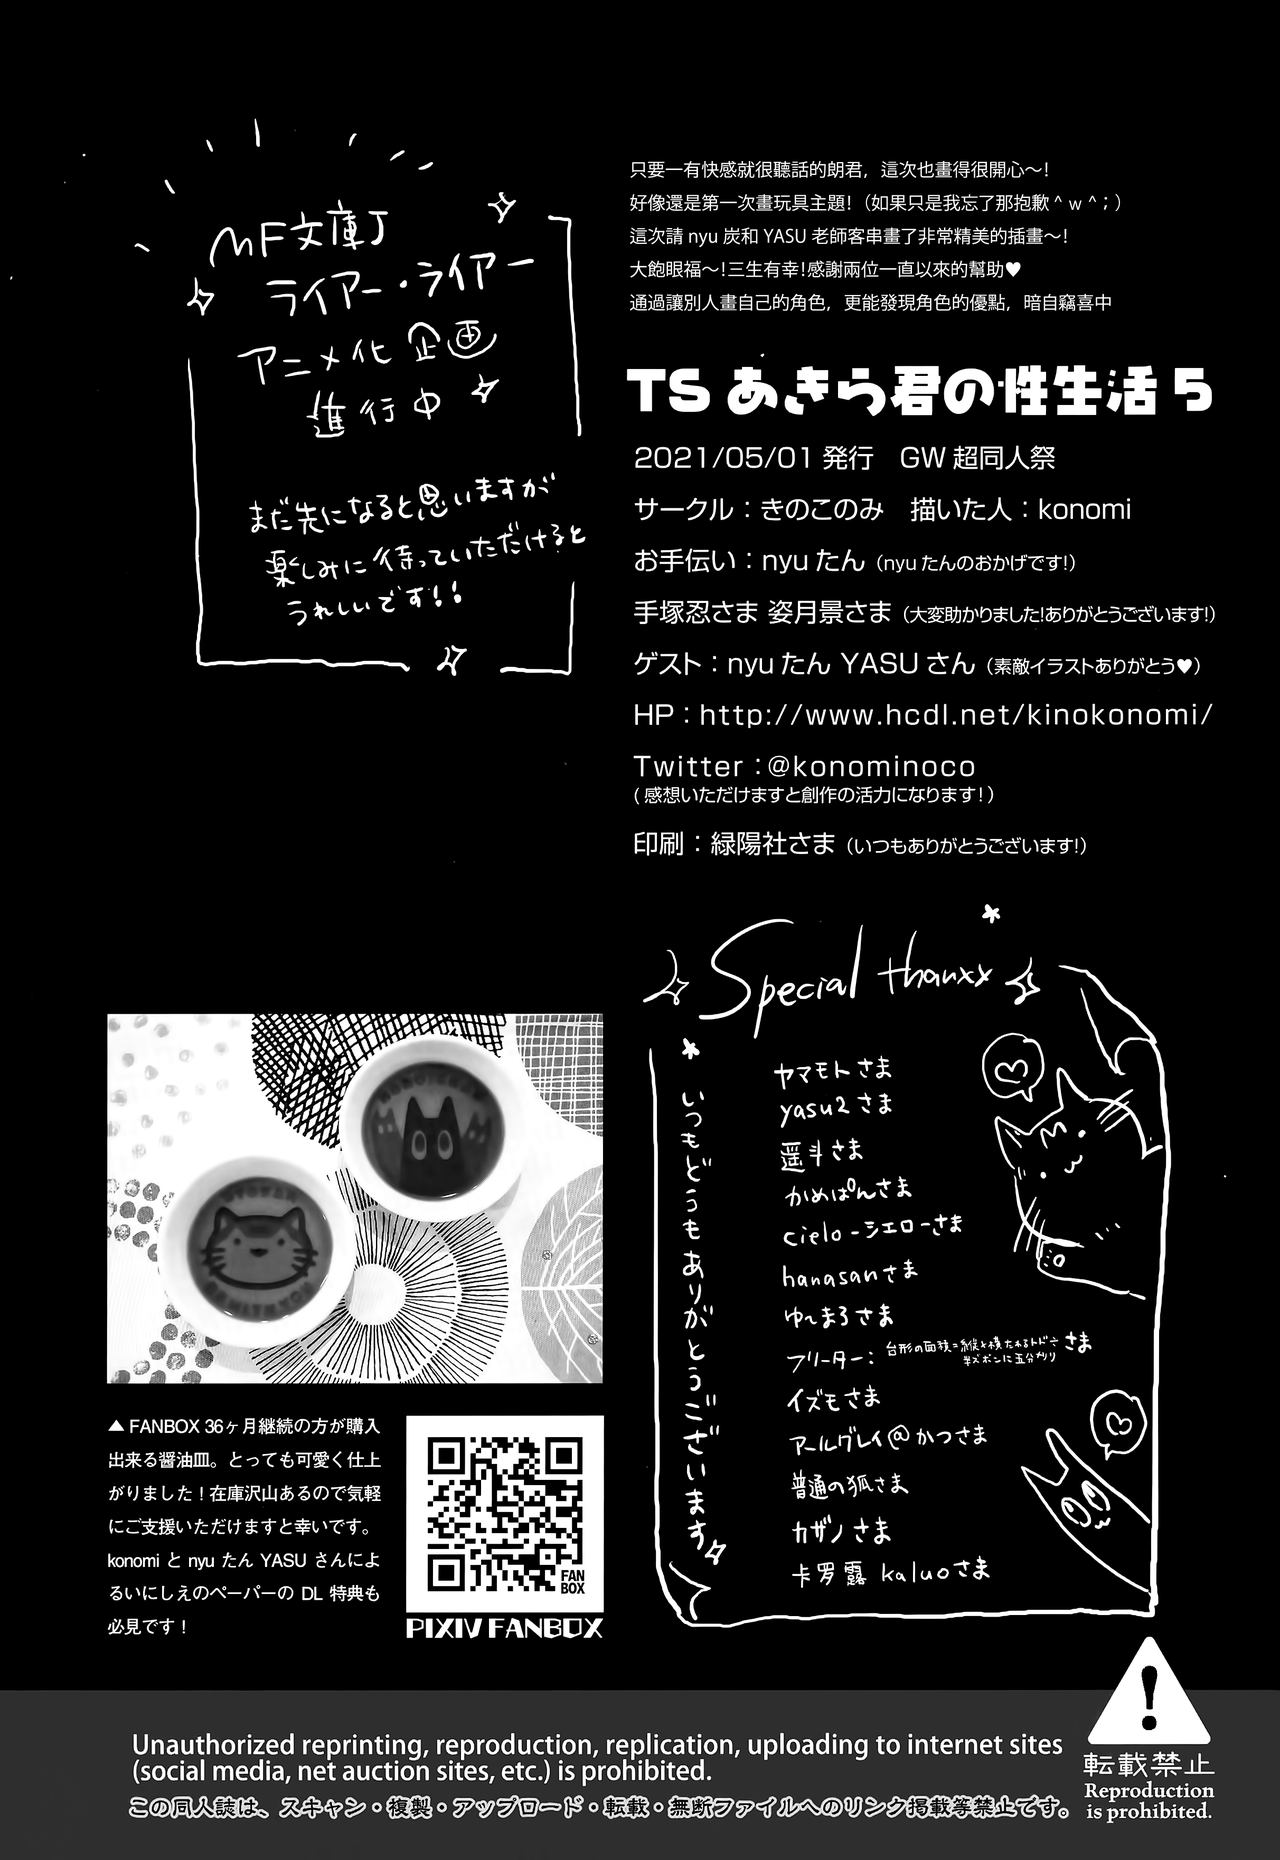 MF文庫J
ライアー・ライアー
アニメ化企画
進行中
まだ先になると思いますが
楽しみに待っていただけると
うれしいです!!
只要一有快感就很聽話的朗君，這次也畫得很開心～!
好像還是第一次畫玩具主題!（如果只是我忘了那抱歉＾ｗ＾；）
這次請 nyu 炭和 YASU 老師客串畫了非常精美的插畫～!
大飽眼福～!三生有幸!感謝兩位一直以來的幫助♥
通過讓別人畫自己的角色，更能發現角色的優點，暗自竊喜中
TSあきら君の性生活5
2021/05/01 発行　GW 超同人祭
サークル：きのこのみ　描いた人：konomi
お手伝い：nyuたん（nyuたんのおかげです!）
手塚忍さま 姿月景さま（大変助かりました!ありがとうございます!）
ゲスト：nyuたん YASUさん（素敵イラストありがとう♥）
HP：http://www.hcdl.net/kinokonomi/
Twitter：@konominoco
(感想いただけますと創作の活力になります!）
印刷：緑陽社さま（いつもありがとうございます!）
Special thanxx
いつもどうもありがとうございます
ヤマモトさま
yasu2さま
遥斗さま
かめぱんさま
cielo-シエローさま
hanasanさま
ゆ〜まろさま
フリーター：台形の面積=縦と横たわるトドさま
半ズボンに五分刈り
イズモさま
アールグレイ@かつさま
普通の狐さま
カザノさま
卡罗露 kaluoさま
▲ FANBOX 36ヶ月継続の方が購入
出来る醤油皿。とっても可愛く仕上
がりました！在庫沢山あるので気軽
にご支援いただけますと幸いです。
konomi と nyu たん YASU さんによ
るいにしえのペーパーの DL 特典も
必見です！
FAN
BOX
PIXIV FANBOX
Unauthorized reprinting, reproduction, replication, uploading to internet sites
(social media, net auction sites, etc.) is prohibited.
この同人誌は、スキャン・複製・アップロード・転載・無断ファイルへのリンク掲載等禁止です。
転載禁止
Reproduction
is prohibited.